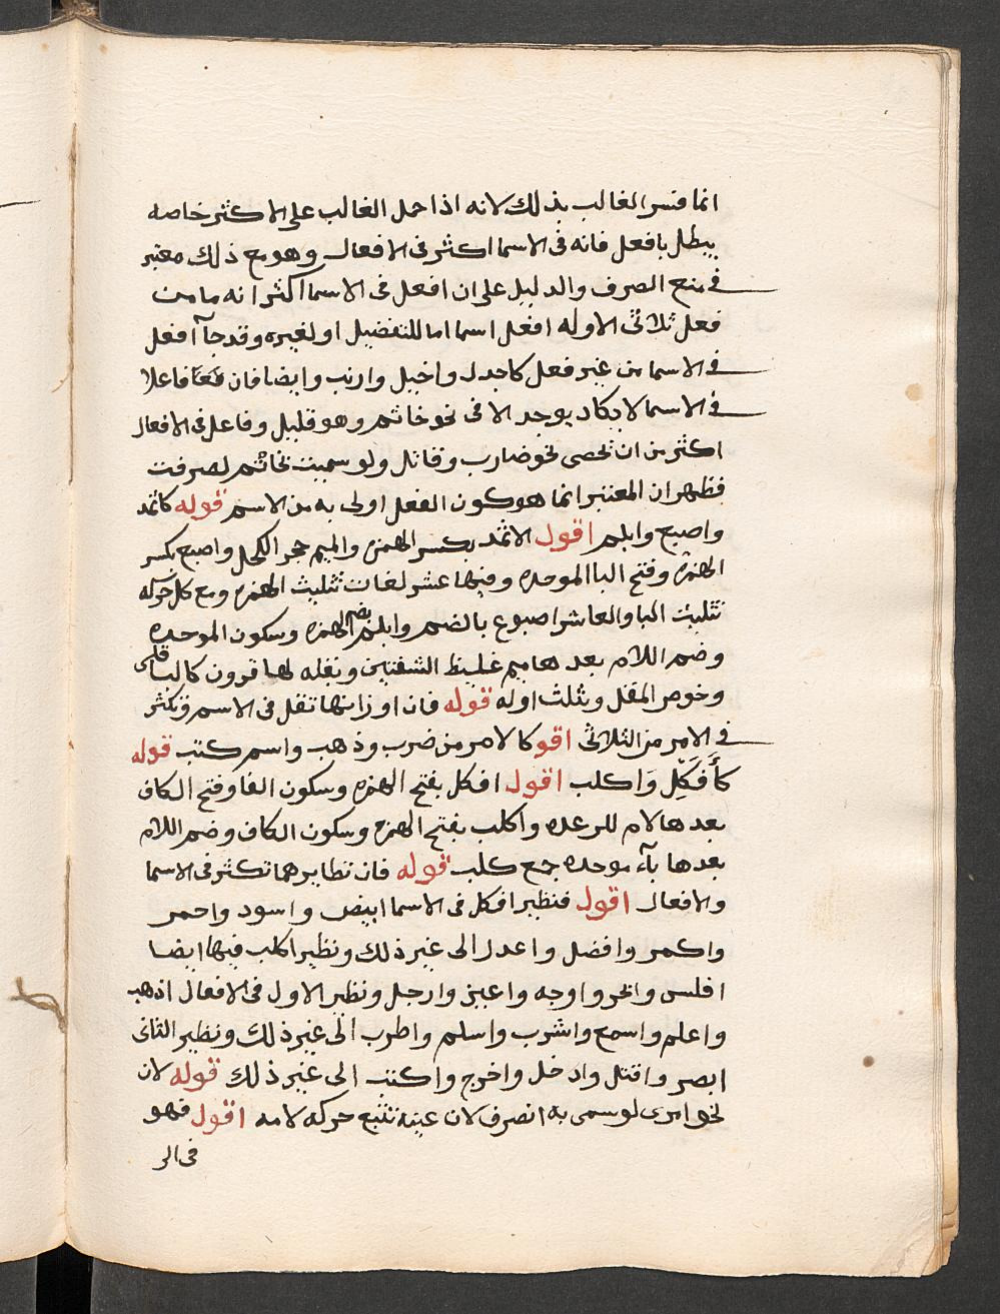 انما فسر الغالب بذلك لانه اذا حمل الغالب على الاكثر خاصه
يبطل بافعل فانه فى الاسما اكثر فى الافعال وهو مع ذلك معتبر
فى منع الصرف والدليل على ان افعل فى الاسما اكثر انه ما من
فعل ثلاثى الا وله افعل اسما اما للتفضيل او لغيره وقد جآ افعل
فى الاسما من غير فعل كاجدل واخيل وارنب وايضا فان فاعلا
فى الاسما لا يكاد يوجد الا فى نحو خاتم وهو قليل وفاعل فى الافعال
اكثر من ان تحصى نحو ضارب وقاتل ولو سميت بخاتم لصرفت
فظهر ان المعتبر انما هو كون الفعل اولى به من الاسم قوله كاثمد
واصبع وابلم اقول الاثمد بكسر الهمزه والميم حجر الكحل واصبع بكسر
الهمزه وفتح البا الموحده وفيها عشر لغات تثليث الهمزه ومع كل حركه
تثليث البا والعاشر اصبوع بالضم وابلم بضم الهمزه وسكون الموحده
وضم اللام بعدها ميم غليظ الشفتين وبقله لها قرون كالباقلى
وخوص المقل ويثلث اوله قوله فان اوزانها تقل فى الاسم وتكثر
فى الامر من الثلاثى اقو كالامر من ضرب وذهب واسم كتب قوله
كأفكل واكلب اقول افكل بفتح الهمزه وسكون الفا وفتح الكاف
بعدها لام للرعده واكلب بفتح الهمزه وسكون الكاف وضم اللام
بعدها بآء موحده جمع كلب قوله فان نظايرهما تكثر فى الاسما
والافعال اقول فنظير افكل فى الاسما ابيض واسود واحمر
واكمر وافضل واعدل الى غير ذلك ونظير اكلب فيها ايضا
افلس وابحر واوجه واعين وارجل ونظير الاول فى الافعال اذهب
واعلم واسمع واشرب واسلم واطرب الى غير ذلك ونظير الثانى
ابصر واقتل وادخل واخرج واكتب الى غير ذلك قوله لان
نحو امرى لو سمى به انصرف لان عينه تتبع حركه لامه اقول فهو
فى الر